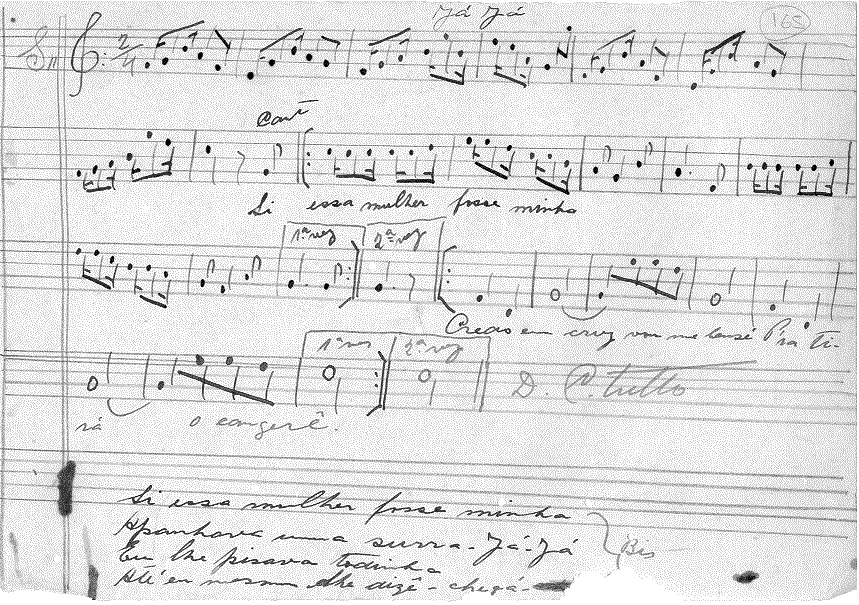 Já Já
165
2/4
Cant
Si essa mulher fosse minha
1ª vez 2ª vez
Credo em cruz vou me benzê Pra ti-
1ª vez 2ª vez
D. C. tutto
rá o cangerê.
Si essa mulher fosse minha
Apanhava uma surra - Já-Já
Bis
Eu lhe pisava todinha
Até eu mesmo lhe dizê - chegá-